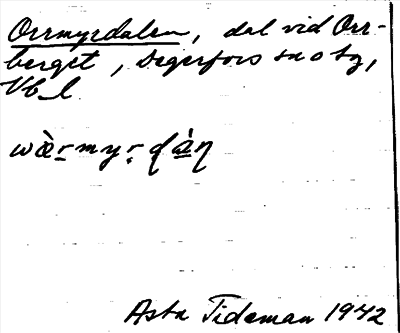 Orrmyrdalen, dal vid Orr-
berget, Degerfors sn o tg,
Vb l
wæ̀r̠myr̠ḍà̠ṇ
Asta Tideman 1942